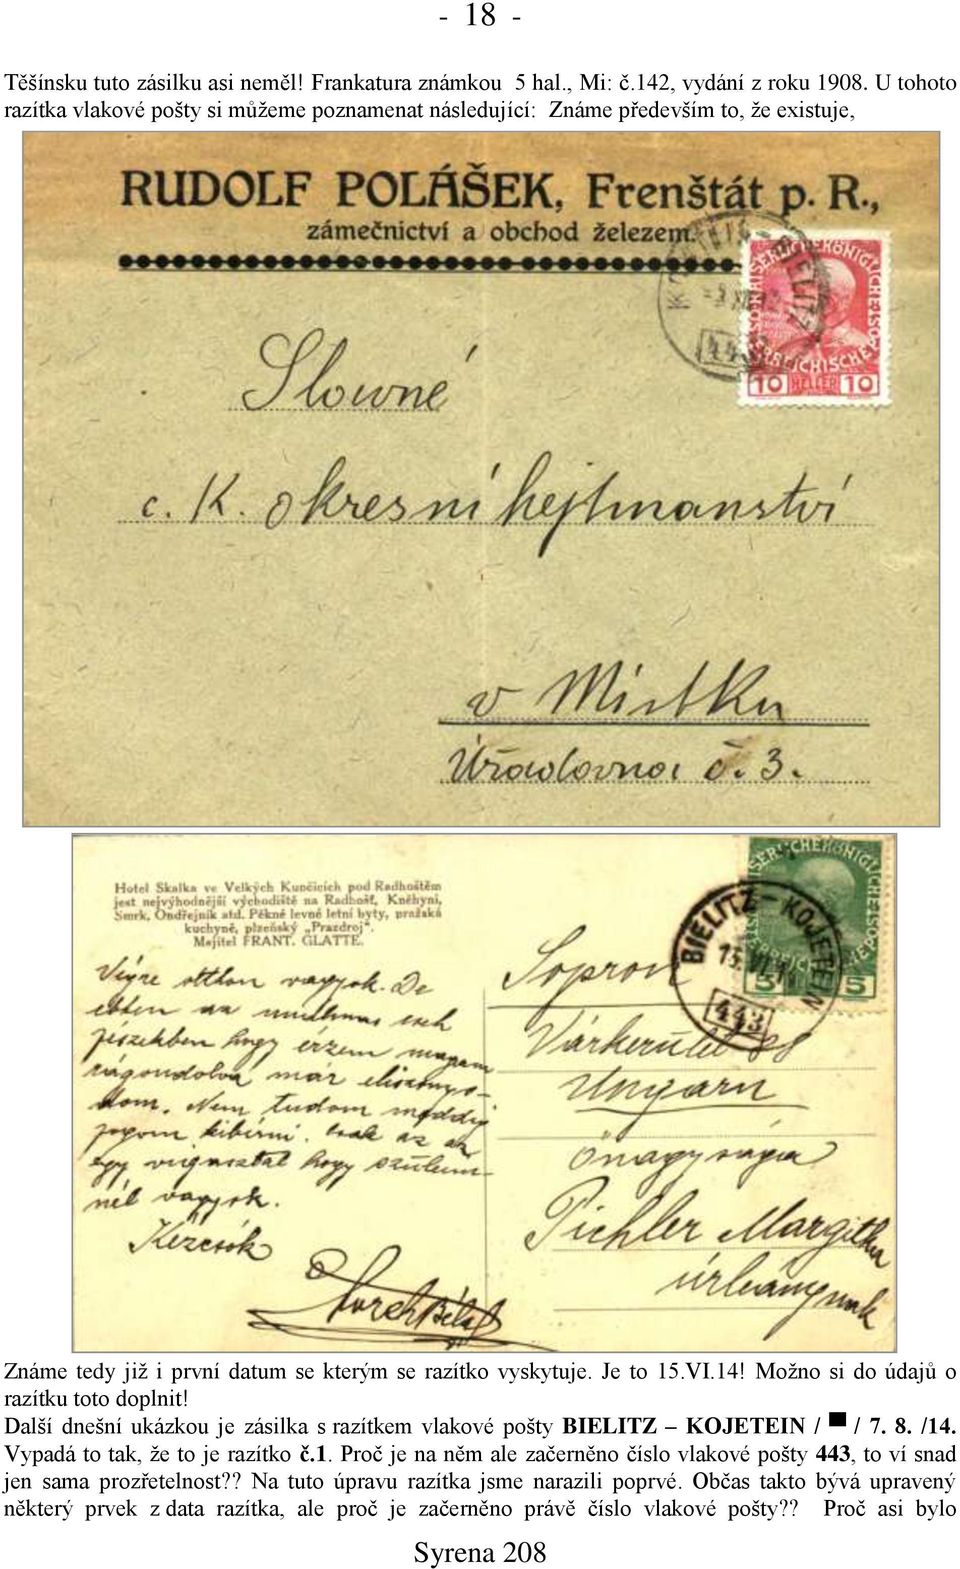 - 18 -
Těšínsku tuto zásilku asi neměl! Frankatura známkou 5 hal., Mi: č.142, vydání z roku 1908. U tohoto
razítka vlakové pošty si můžeme poznamenat následující: Známe především to, že existuje,
RUDOLF POLÁŠEK, Frenštát p. R.,
zámečnictví a obchod železem.
BIELITZ
10 HELLER 10
Slowné
c. K. okresní hejtmanství
v Místku
Úřadovna č. 3.
Hotel Skalka ve Velkých Kunčicích pod Radhoštěm
jest nejvýhodnější východiště na Radhošť, Kněhyni,
Smrk, Ondřejník atd. Pěkné levné letní byty, pražská
kuchyně, plzeňský „Prazdroj“.
Majitel FRANT. GLATTE.
BIELITZ – KOJETEIN
15.VI.14
443
5 5
Végre otthon vagyok. De
ebben az
hogy érzem magam
már
dom. Nem tudom meddig
fogom kibírni. Csak az az
egy vigasztal hogy szüleim-
nél vagyok.
Kézcsók
Béla
Sopron
Várkerület 88
Ungarn
Önagysága
Pichler Margitka
úrleánynak
Známe tedy již i první datum se kterým se razítko vyskytuje. Je to 15.VI.14! Možno si do údajů o
razítku toto doplnit!
Další dnešní ukázkou je zásilka s razítkem vlakové pošty BIELITZ – KOJETEIN / ▀ / 7. 8. /14.
Vypadá to tak, že to je razítko č.1. Proč je na něm ale začerněno číslo vlakové pošty 443, to ví snad
jen sama prozřetelnost?? Na tuto úpravu razítka jsme narazili poprvé. Občas takto bývá upravený
některý prvek z data razítka, ale proč je začerněno právě číslo vlakové pošty?? Proč asi bylo
Syrena 208